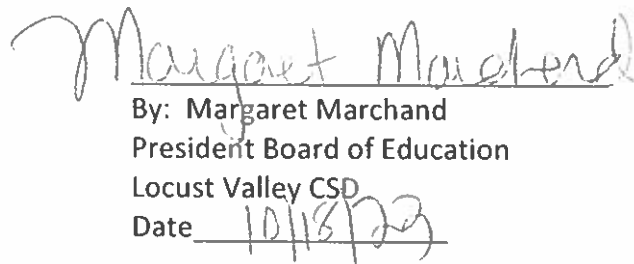 Margaret Marchand
By: Margaret Marchand
President Board of Education
Locust Valley CSD
Date 10/18/23